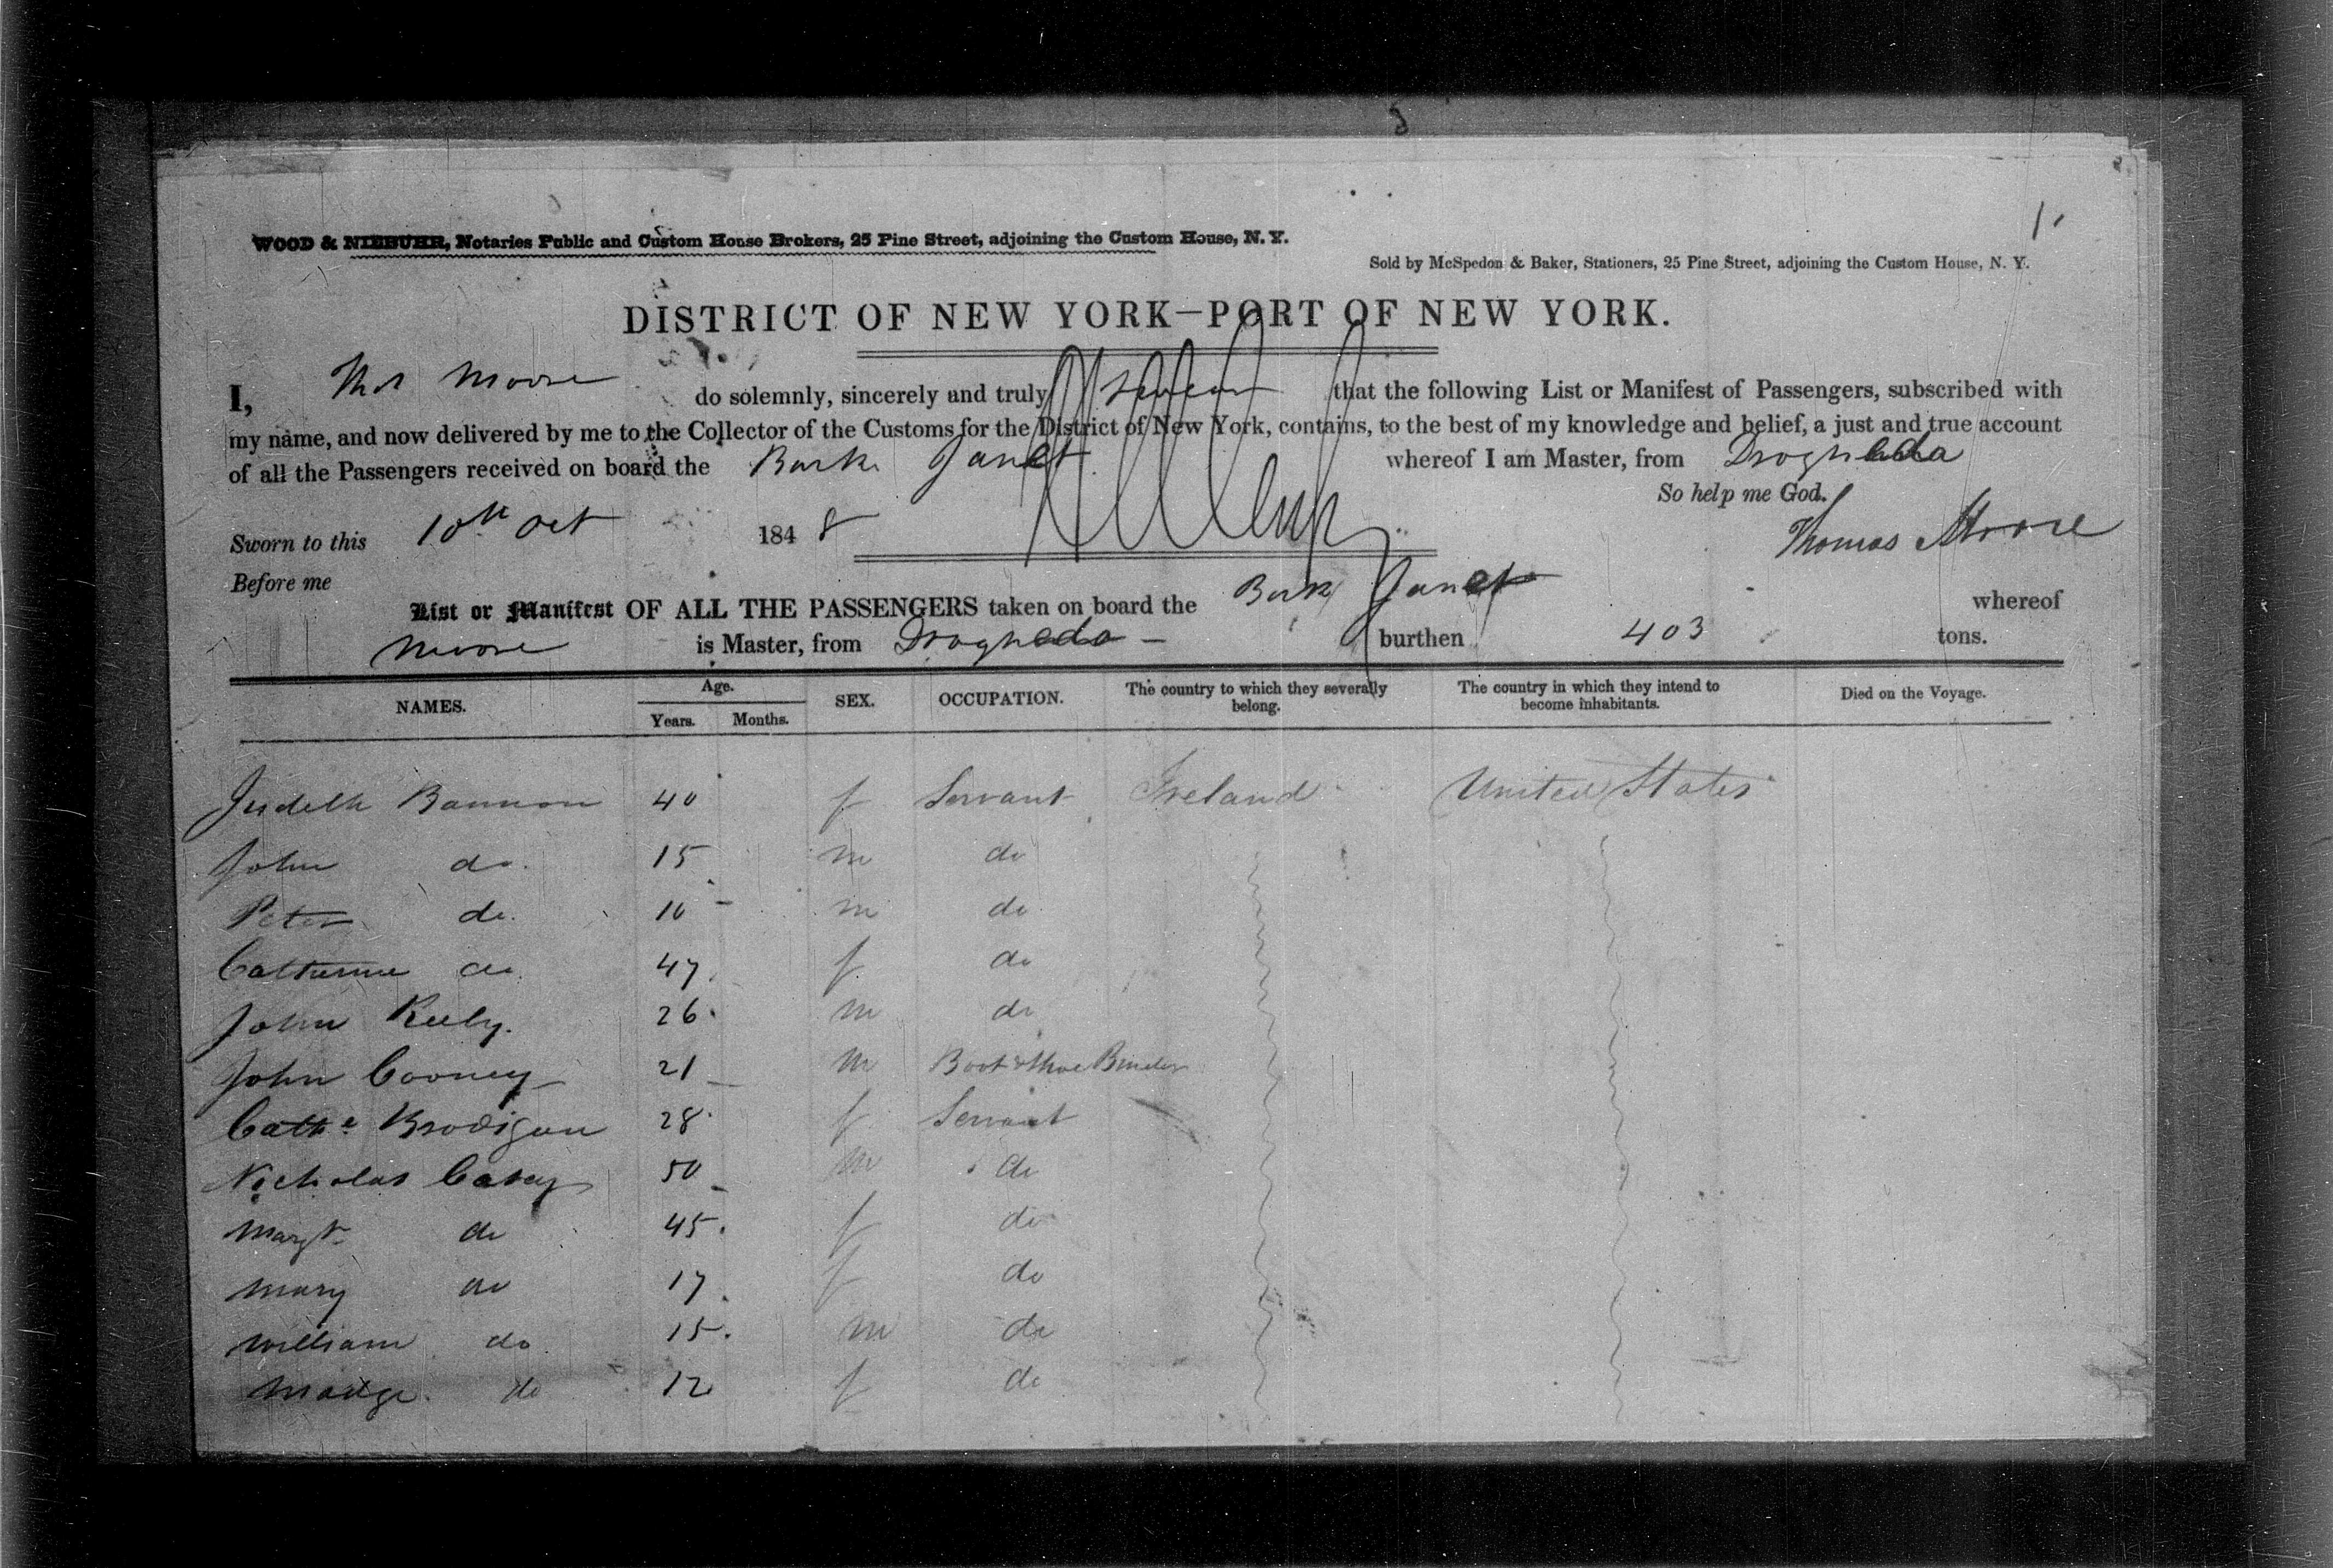 1.
WOOD & NIEBUHR, Notaries Public and Custom House Brokers, 25 Pine Street, adjoining the Custom House, N. Y.
Sold by McSpedon & Baker, Stationers, 25 Pine Street, adjoining the Custom House, N. Y.
DISTRICT OF NEW YORK—PORT OF NEW YORK.
I, Thos Moore do solemnly, sincerely and truly swear that the following List or Manifest of Passengers, subscribed with
my name, and now delivered by me to the Collector of the Customs for the District of New York, contains, to the best of my knowledge and belief, a just and true account
of all the Passengers received on board the Bark Janet whereof I am Master, from Drogheda
So help me God.
Sworn to this 10th Oct 1848 Thomas Moore
Before me
List or Manifest OF ALL THE PASSENGERS taken on board the Bark Janet whereof
Moore is Master, from Drogheda — burthen 403 tons.
NAMES. Age. Years. Months. SEX. OCCUPATION. The country to which they severally belong. The country in which they intend to become inhabitants. Died on the Voyage.
Judeth Bannon 40 f Servant Ireland United States
John do. 15 m do
Peter do. 10 m do
Catherine do. 47 f do
John Reely. 26 m do
John Cooney 21 m Boot & Shoe Binder
Cathe Brodigan 28 f Servant
Nicholas Casey 50 m do
Margt do 45 f do
Mary do 17 f do
William do 15 m do
Madge. do 12 f do